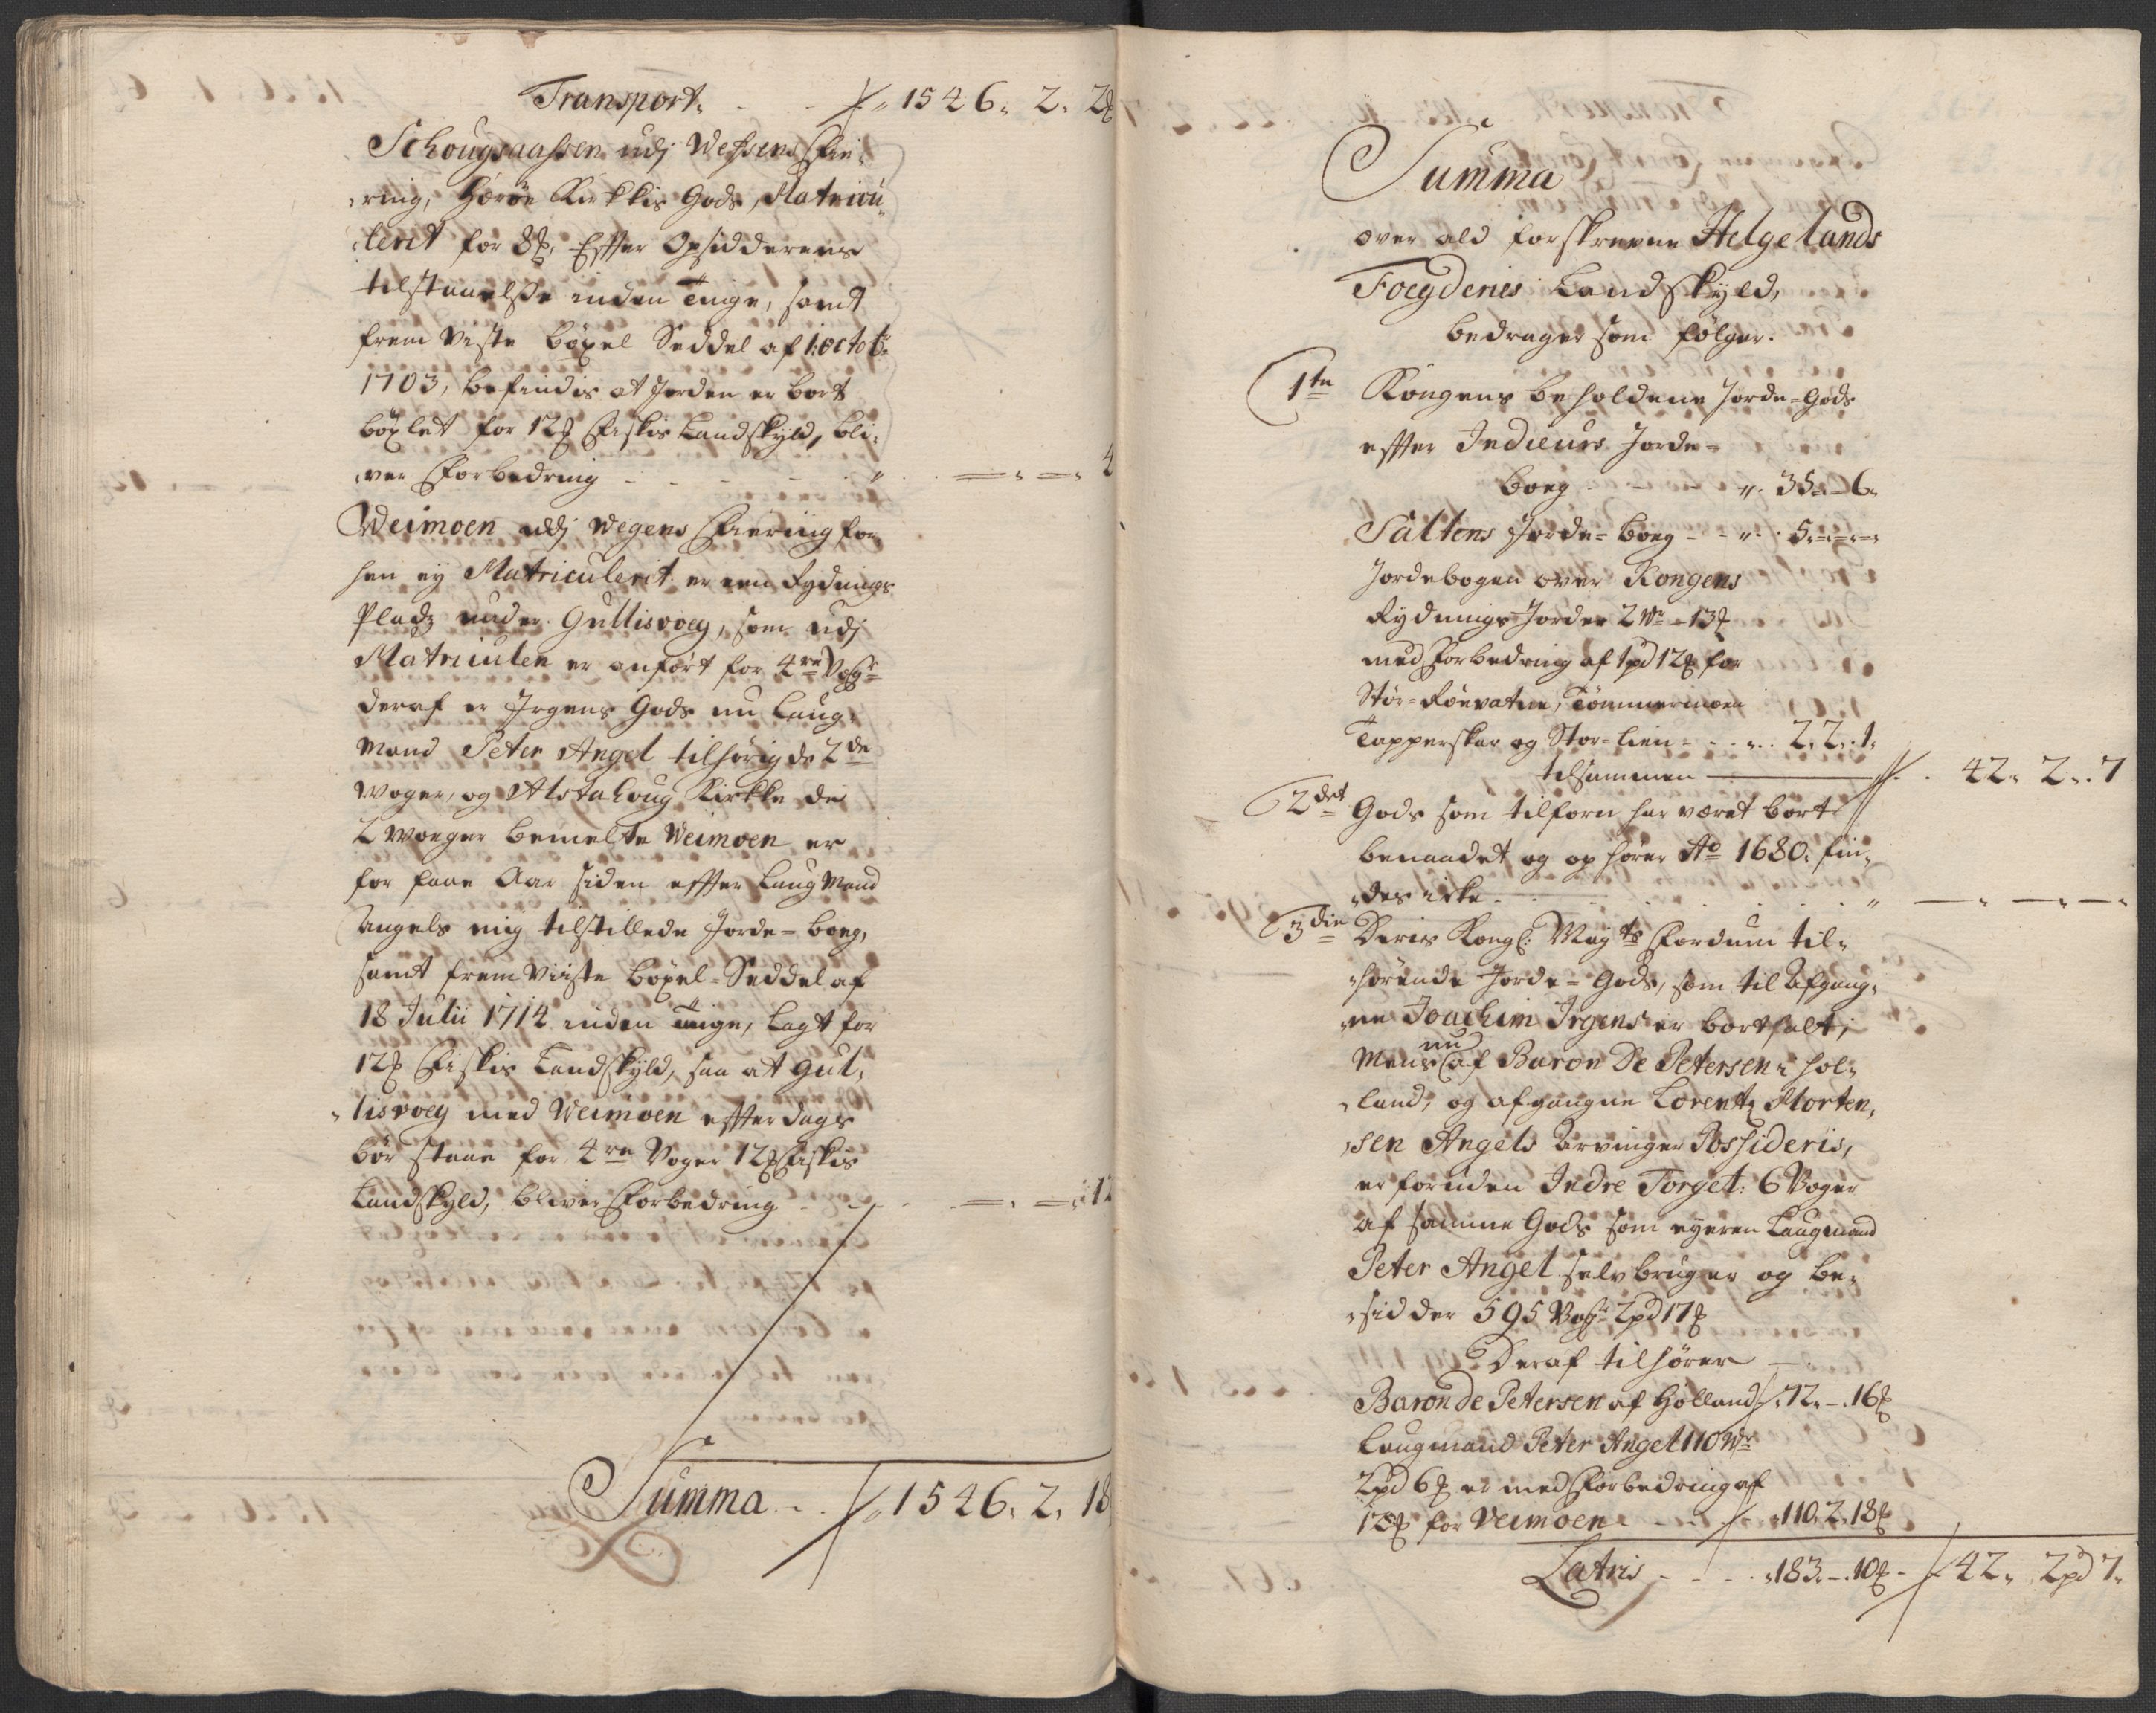 Transport. - - 1546. 2. 2
Schougsaassen udj Wefsens Fie-
ring, Herøe Kirkkis Gods, Matricu-
lerit for 8℔, Effter Opsidderens
tilstaaelsse inden Tinge, samt
frem viste böxel Seddel af 1. octob:
1703, befindis at Jorden er bort
böxlet for 12℔ Fiskis Landskyld, bli-
ver Forbedring - - - - - " = " = " 4
Weimoen udj Wegens Fiering for
hen ey Matriculerit er een Rydnings
Pladz under Gullisvoeg, som udj
Matriculen er anfört for 4re Voger
deraf er Jrgens Gods nu Laug-
Mand Peter Angel tilhörig de 2de
Woger, og Alstahoug Kirkke de
2 Woeger bemelte Weimoen er
for faae Aar siden effter Laug Mand
Angels mig tilstillede Jorde-boeg,
samt frem viiste böxel-Seddel af
18 Julii 1714 inden Tinge, lagt for
12℔ Fiskis Landskyld, saa at Gul-
lisvoeg med Weimoen effter dags
bör staae for 4re Voger 12℔ Fiskis
Landskyld, bliver Forbedring - - = " = " 12
Summa - . 1546. 2. 18
Summa
over ald forskrevne Helgelands
Foegderies Landskyld,
bedrager som fölger.
1te Kongens beholdene Jorde-Gods
effter Indieurs Jorde-
boeg - - - " 35. - 6.
Saltens Jorde-boeg - - " 5. = " =
Jordebogen over Kongens
Rydnings Jorder 2 Wr - 13℔
med Forbedring af 1pd 12℔ for
Stor-Röevatne, Tömmermoen
Tapperskar og Stor-lien - - " 2. 2. 1.
tilsammen 42. 2. 7
2det Gods som tilforn har været bort
benaadet og ophörer Ao 1680. fin-
des icke - . . . . . . " — " — " —
3die Deris Kongl: Mayts Fordum til-
hörende Jorde-Gods, som til Afgang-
ne Joachim Irgens er bortsalt;
Mens nu af Baron De Petersen i Hol-
land, og afgangne Lorentz Morten-
sen Angels Arvinger Possideris,
er foruden Indre Torget: 6 Voger
af samme Gods som eyeren Laugmand
Peter Angel selv bruger og be-
sidder 595 Voger 2pd 17℔
Deraf tilhörer —
Baron de Petersen af Holland 72. - . 16℔
Laugmand Peter Angel 110 Wr
2pd 6℔ er med Forbedring af
12℔ for Veimoen - - - 110. 2. 18℔
Lateris - - - 183. - . 10℔ - 42. 2pd 7.